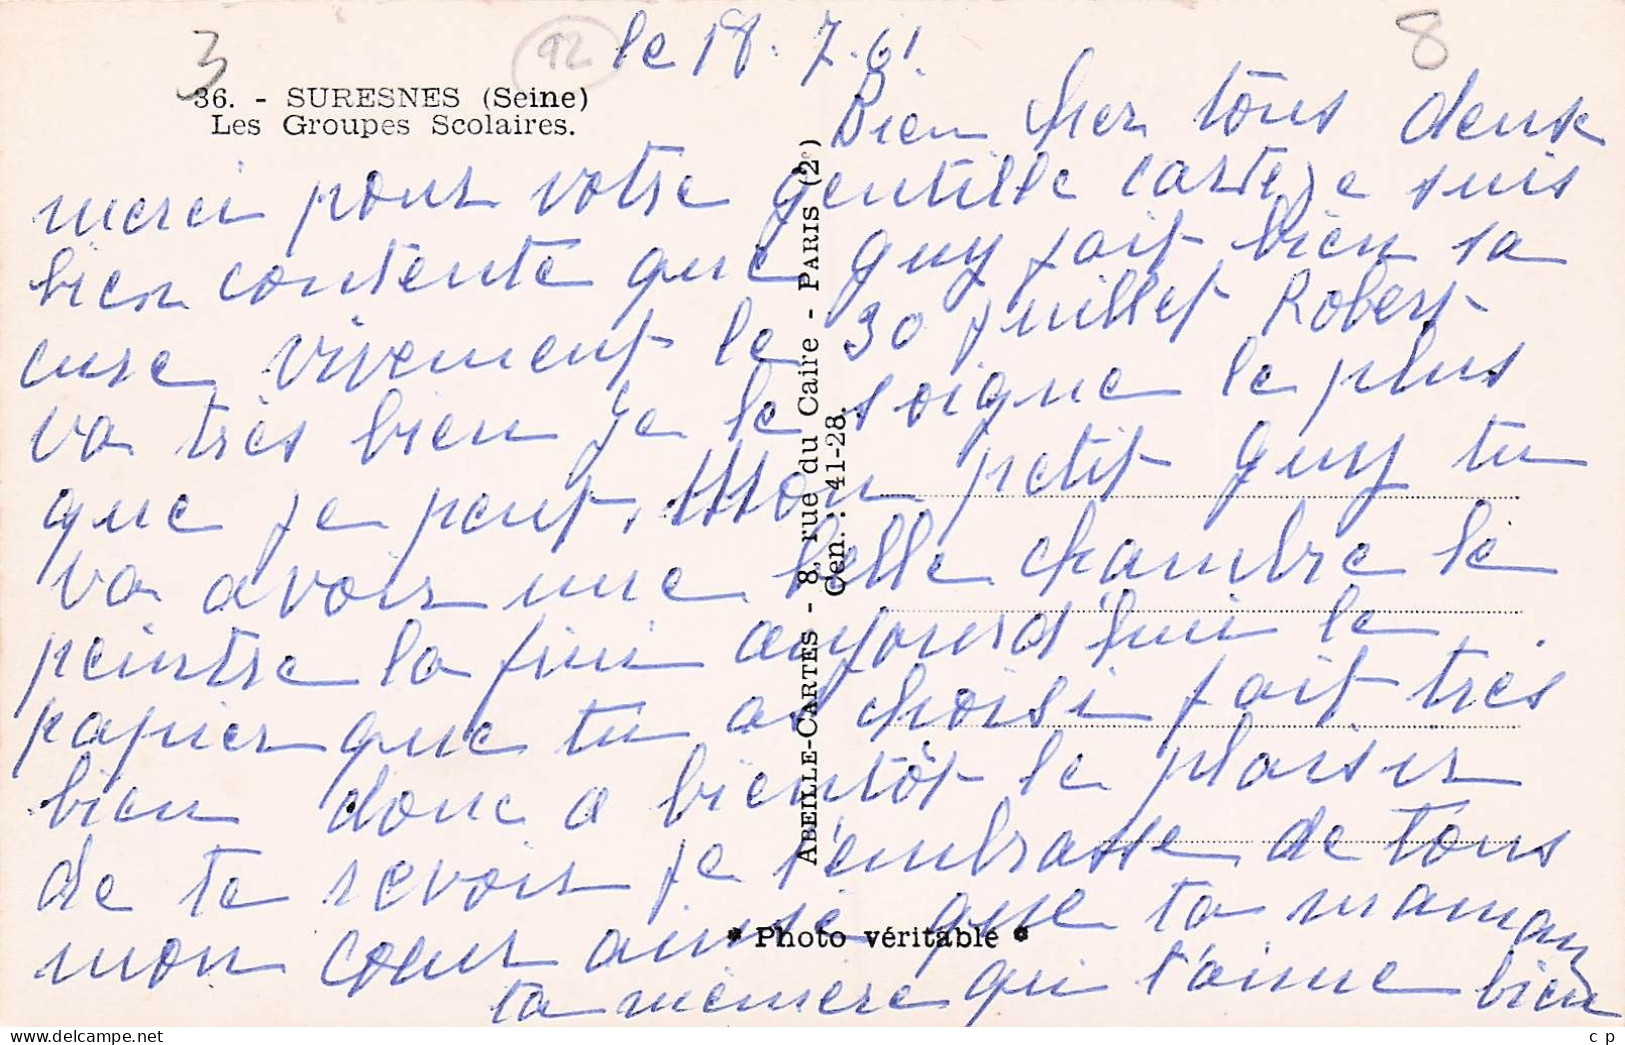 3
92
le 18.7.61.
8
36. - SURESNES (Seine)
Les Groupes Scolaires.
Bien cher tous deux
merci pour votre gentille carte je suis
bien contente que guy fait bien sa
cure, vivement le 30 juillet Robert
va très bien je le soigne le plus
que je peut, Mon petit guy tu
va avoir une belle chambre le
peintre la fini aujourd'hui le
papier que tu as choisi fait très
bien donc a bientôt le plaisir
de te revoir je t'embrasse de tous
mon cœur ainsi que ta maman
ta mémère qui t'aime bien
ABEILLE-CARTES - 8, rue du Caire - PARIS (2e)
Cen. : 41-28.
* Photo véritable *
cp